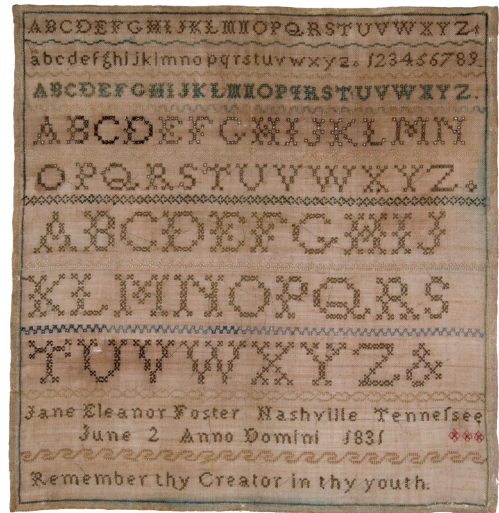 ABCDEFGHIJKLMNOPQRSTUVWXYZ
abcdefghijklmnopqrstuvwxyz. 123456789
ABCDEFGHIJKLMNOPqRSTUVWXYZ.
ABCDEFGHIJKLMN
OPQRSTUVWXYZ.
ABCDEFGHIJ
KLMNOPQRS
TUVWXYZ&
Jane Eleanor Foster Nashville Tenneſsee
June 2 Anno Domini 1831
Remember thy Creator in thy youth.